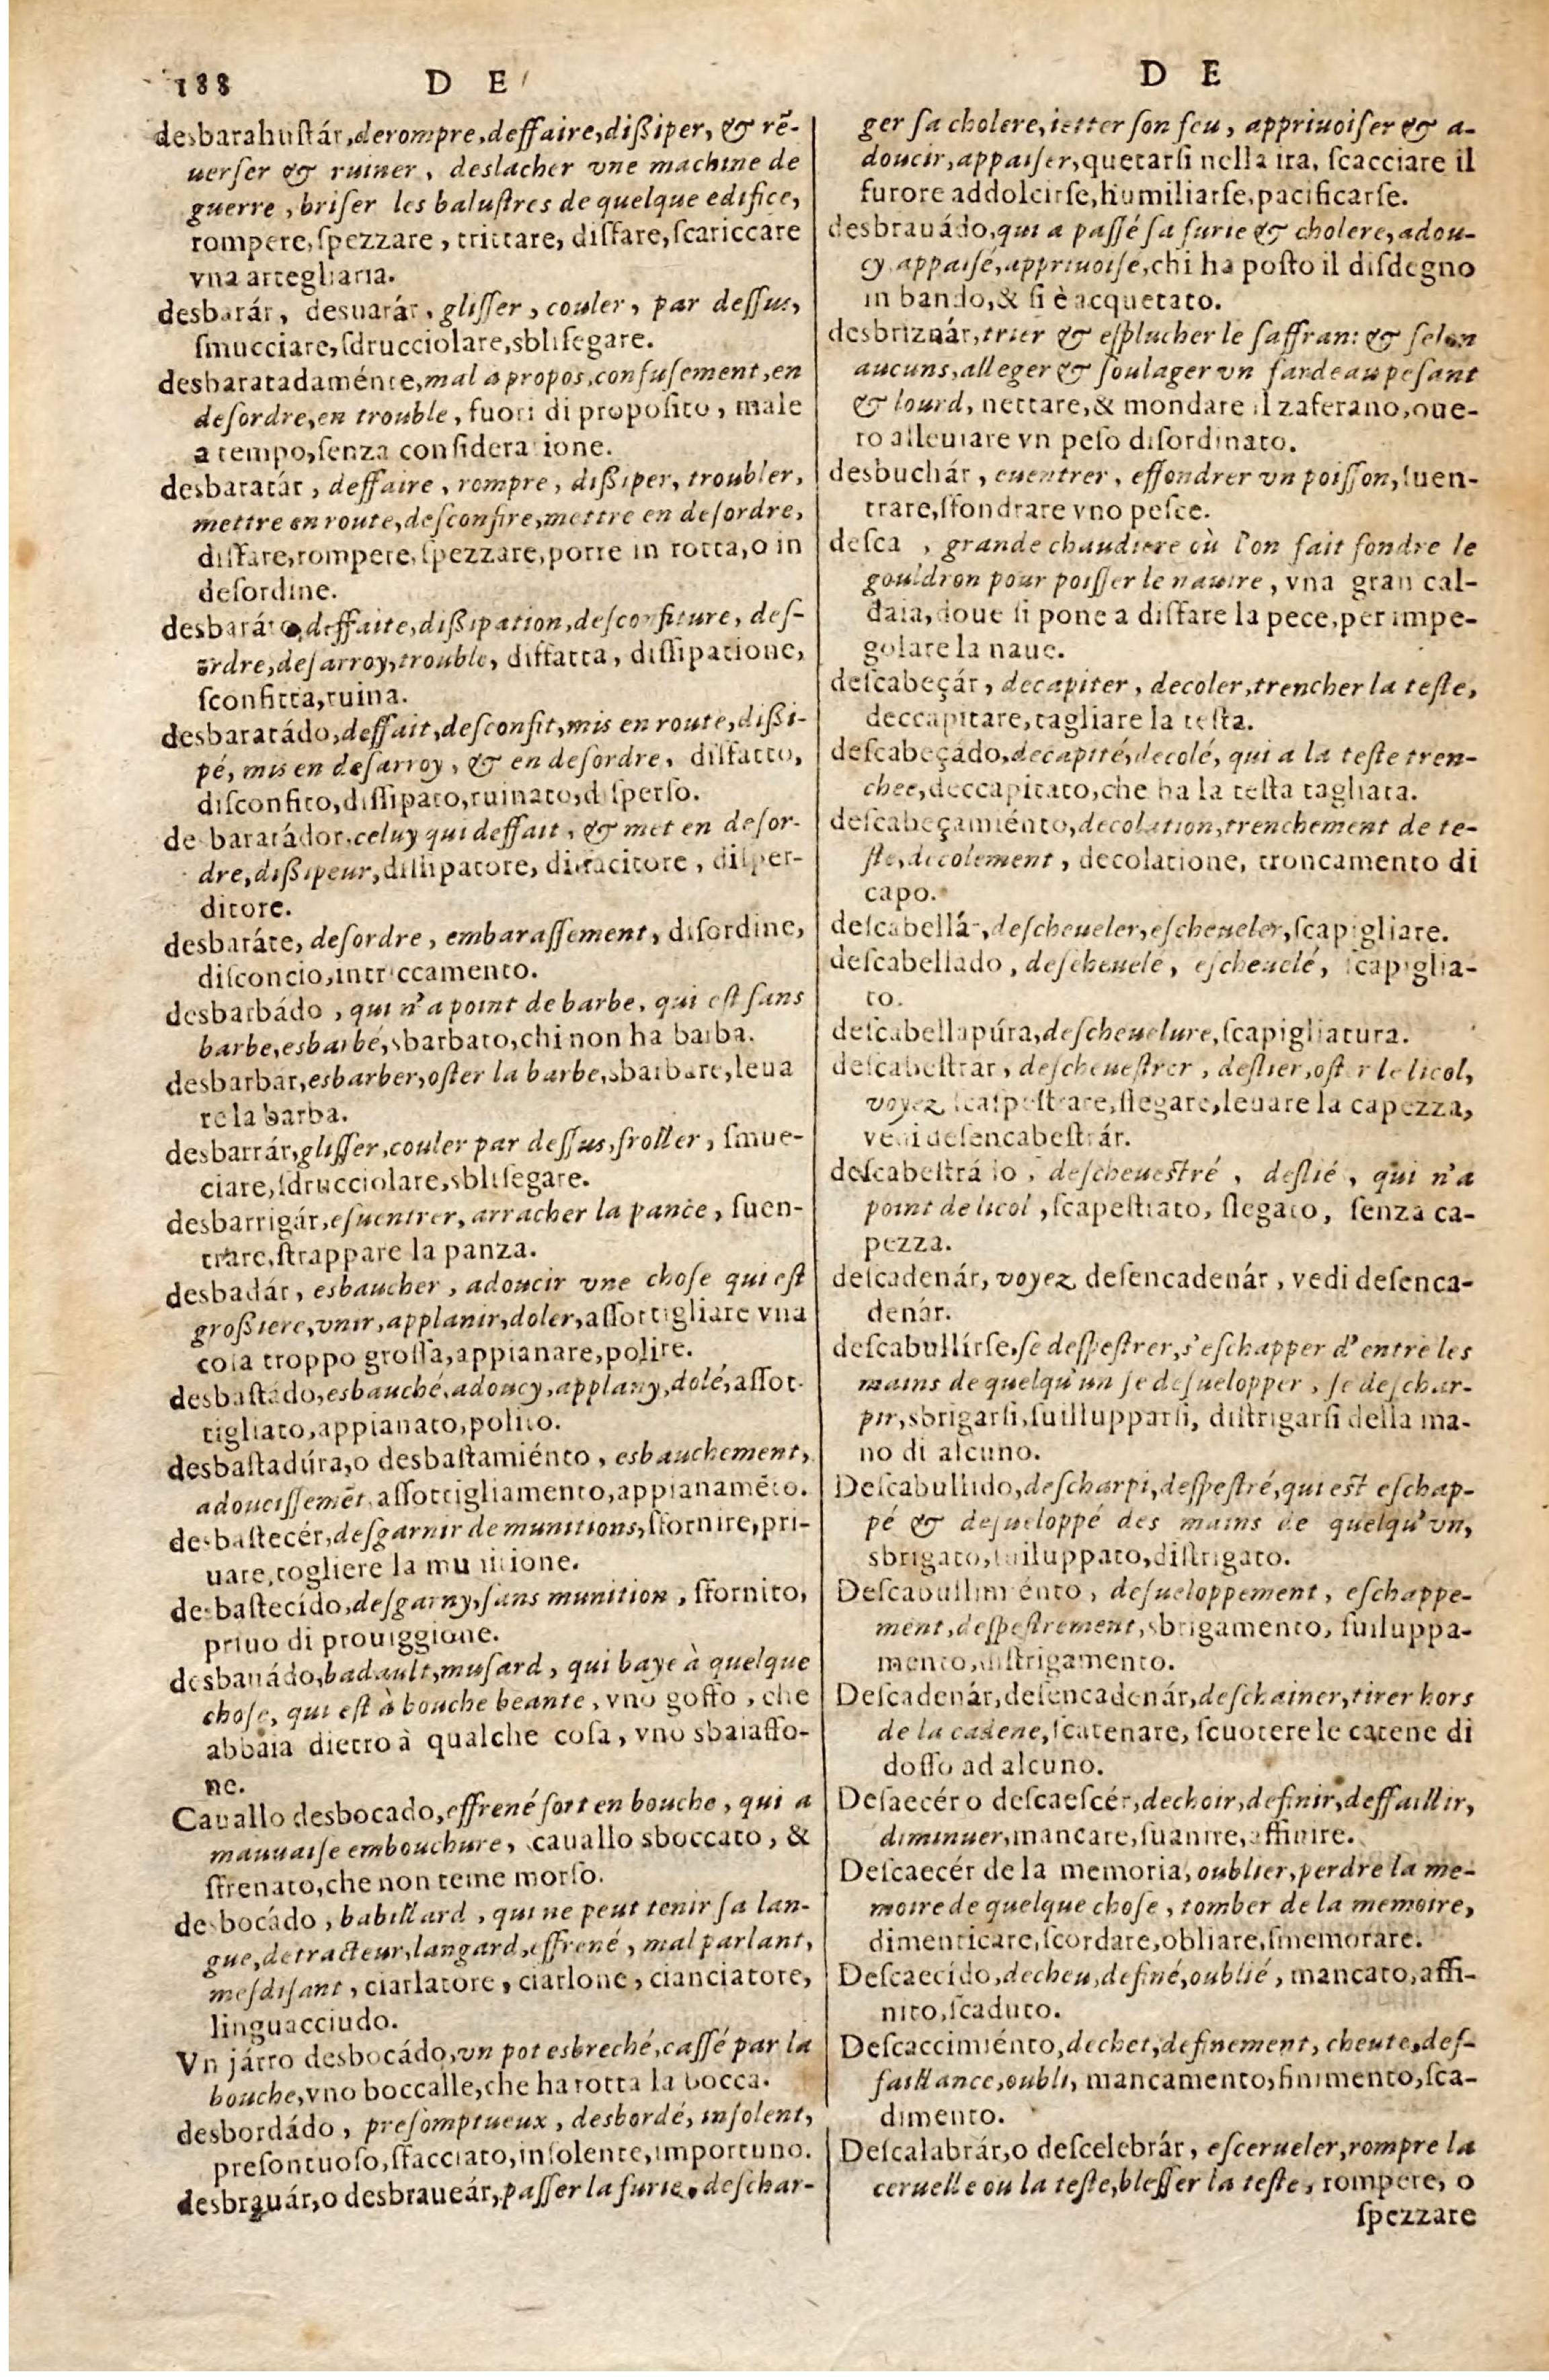 188 D E
desbarahustár, derompre, deffaire, dißiper, & rē-
uerser & ruiner, deslacher vne machine de
guerre, briser les balustres de quelque edifice,
rompere, spezzare, trittare, disfare, scariccare
vna artegliaria.
desbarár, desuarár, glisser, couler, par dessus,
smucciare, sdrucciolare, sblisegare.
desbaratadaménte, mal a propos, confusement, en
desordre, en trouble, fuori di proposito, male
a tempo, senza consideratione.
desbaratár, deffaire, rompre, dißiper, troubler,
mettre en route, desconfire, mettre en desordre,
disfare, rompere, spezzare, porre in rotta, o in
desordine.
desbaráto, deffaite, dißipation, desconfiture, des-
ordre, desarroy, trouble, disfatta, dissipatione,
sconfitta, ruina.
desbaratádo, deffait, desconfit, mis en route, dißi-
pé, mis en desarroy, & en desordre, disfatto,
disconfito, dissipato, ruinato, disperso.
desbaratádor, celuy qui deffait, & met en desor-
dre, dißipeur, dissipatore, disfacitore, disper-
ditore.
desbaráte, desordre, embarassement, disordine,
disconcio, intriccamento.
desbarbádo, qui n'a point de barbe, qui est sans
barbe, esbarbé, sbarbato, chi non ha barba.
desbarbar, esbarber, oster la barbe, sbarbare, leua
re la barba.
desbarrár, glisser, couler par dessus, froller, smue-
ciare, sdrucciolare, sblisegare.
desbarrigár, esuentrer, arracher la pance, suen-
trare, strappare la panza.
desbadár, esbaucher, adoucir vne chose qui est
großiere, vnir, applanir, doler, assottigliare vna
cosa troppo grossa, appianare, polire.
desbastádo, esbauché, adoucy, applany, dolé, assot-
tigliato, appianato, polito.
desbastadúra, o desbastamiénto, esbauchement,
adoucissemēt, assottigliamento, appianamēto.
desbastecér, desgarnir de munitions, sfornire, pri-
uare, togliere la munitione.
desbastecído, desgarny, sans munition, sfornito,
priuo di prouiggione.
desbauádo, badault, musard, qui baye à quelque
chose, qui est à bouche beante, vno goffo, che
abbaia dietro à qualche cosa, vno sbaiaffo-
ne.
Cauallo desbocado, effrené fort en bouche, qui a
mauuaise embouchure, cauallo sboccato, &
sfrenato, che non teme morso.
desbocádo, babillard, qui ne peut tenir sa lan-
gue, detracteur, langard, effrené, mal parlant,
mesdisant, ciarlatore, ciarlone, cianciatore,
linguacciudo.
Vn járro desbocádo, vn pot esbreché, cassé par la
bouche, vno boccalle, che ha rotta la bocca.
desbordádo, presomptueux, desbordé, insolent,
presontuoso, sfacciato, insolente, importuno.
desbrauár, o desbraueár, passer la furie, deschar-
D E
ger sa cholere, ietter son feu, appriuoiser & a-
doucir, appaiser, quetarsi nella ira, scacciare il
furore addolcirse, humiliarse, pacificarse.
desbrauádo, qui a passé sa furie & cholere, adou-
cy, appaisé, appriuoisé, chi ha posto il disdegno
in bando, & si è acquetato.
desbriznár, trier & esplucher le saffran: & selon
aucuns, alleger & soulager vn fardeau pesant
& lourd, nettare, & mondare il zaferano, oue-
ro alleuiare vn peso disordinato.
desbuchár, euentrer, effondrer vn poisson, suen-
trare, sfondrare vno pesce.
desca, grande chaudiere où l'on fait fondre le
gouldron pour poisser le nauire, vna gran cal-
daia, doue si pone a disfare la pece, per impe-
golare la naue.
descabeçár, decapiter, decoler, trencher la teste,
deccapitare, tagliare la testa.
descabeçádo, decapité, decolé, qui a la teste tren-
chee, deccapitato, che ha la testa tagliata.
descabeçamiénto, decolation, trenchement de te-
ste, decolement, decolatione, troncamento di
capo.
descabellár, descheueler, escheueler, scapigliare.
descabellado, descheuelé, escheuelé, scapiglia-
to.
descabellapúra, descheuelure, scapigliatura.
descabestrar, descheuestrer, deslier, oster le licol,
voyez scaspestrare, slegare, leuare la capezza,
vedi desencabestrár.
descabestrádo, descheuestré, deslié, qui n'a
point de licol, scapestrato, slegato, senza ca-
pezza.
descadenár, voyez desencadenár, vedi desenca-
denár.
descabullírse, se despestrer, s'eschapper d'entre les
mains de quelqu'un se desuelopper, se deschar-
pir, sbrigarsi, suillupparsi, distrigarsi della ma-
no di alcuno.
Descabullido, descharpi, despestré, qui est eschap-
pé & desueloppé des mains de quelqu'vn,
sbrigato, suiluppato, distrigato.
Descabullimiénto, desueloppement, eschappe-
ment, despestrement, sbrigamento, suiluppa-
mento, distrigamento.
Descadenár, desencadenár, deschainer, tirer hors
de la cadene, scatenare, scuotere le catene di
dosso ad alcuno.
Desaecér o descaescér, dechoir, definir, deffaillir,
diminuer, mancare, suanire, affinire.
Descaecér de la memoria, oublier, perdre la me-
moire de quelque chose, tomber de la memoire,
dimenticare, scordare, obliare, smemorare.
Descaecido, decheu, definé, oublié, mancato, affi-
nito, scaduto.
Descaccimiénto, dechet, definement, cheute, des-
faillance, oubli, mancamento, finimento, sca-
dimento.
Descalabrár, o descelebrár, escerueler, rompre la
ceruelle ou la teste, blesser la teste, rompere, o
spezzare